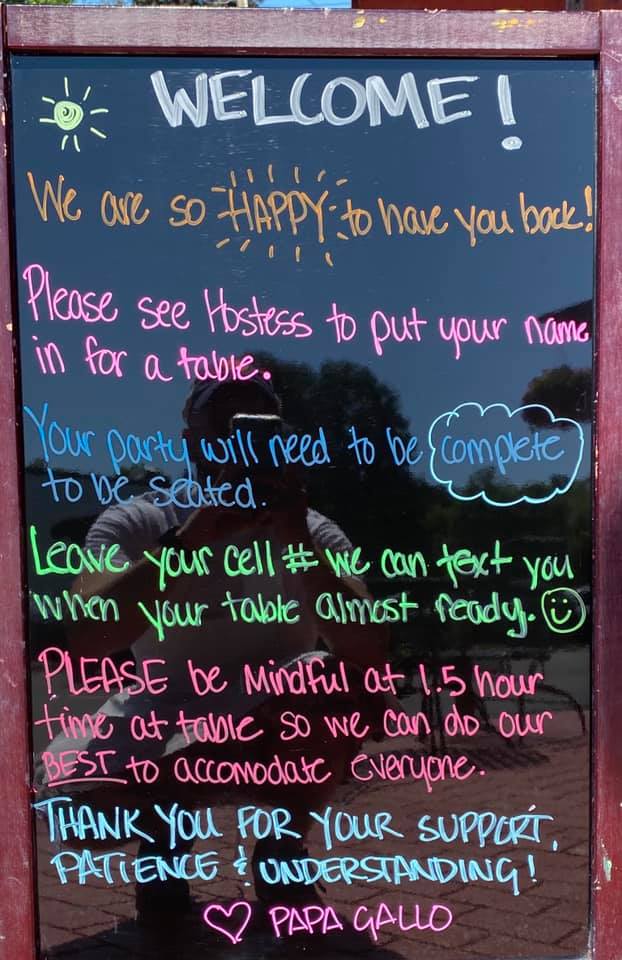 WELCOME!
We are so HAPPY to have you back!
Please see Hostess to put your name
in for a table.
Your party will need to be complete
to be seated.
Leave your cell # we can text you
when your table almost ready.
PLEASE be Mindful at 1.5 hour
time at table so we can do our
BEST to accomodate everyone.
THANK YOU FOR YOUR SUPPORT,
PATIENCE & UNDERSTANDING!
♡ PAPA GALLO